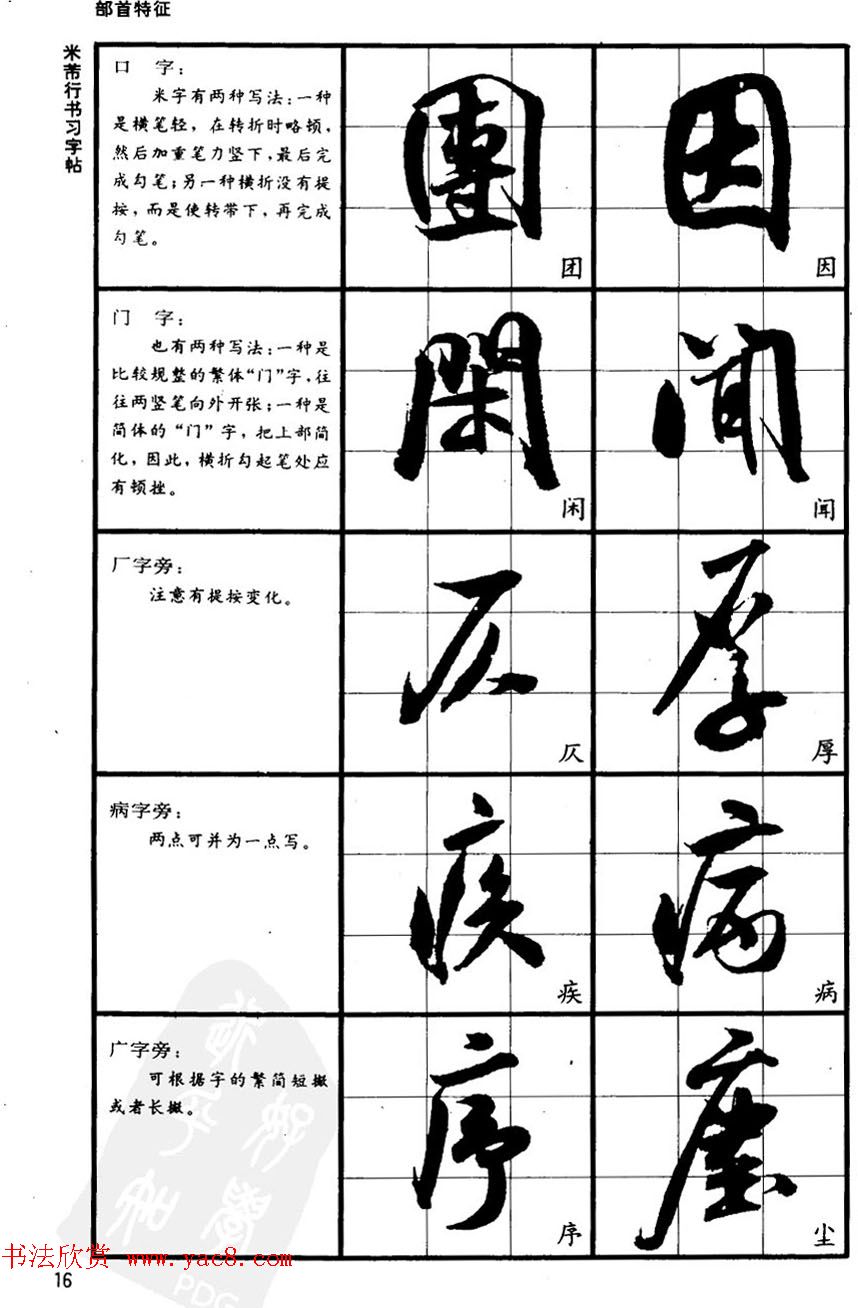 部首特征
米芾行书习字帖
口 字：
米字有两种写法：一种
是横笔轻，在转折时略顿，
然后加重笔力竖下，最后完
成勾笔；另一种横折没有提
按，而是使转带下，再完成
勾笔。
團
团
因
因
门 字：
也有两种写法：一种是
比较规整的繁体“门”字，往
往两竖笔向外开张；一种是
简体的“门”字，把上部简
化，因此，横折勾起笔处应
有顿挫。
閑
闲
闻
闻
厂字旁：
注意有提按变化。
仄
仄
厚
厚
病字旁：
两点可并为一点写。
疾
疾
病
病
广字旁：
可根据字的繁简短撇
或者长撇。
序
序
塵
尘
书法欣赏 www.yac8.com
PDG
16